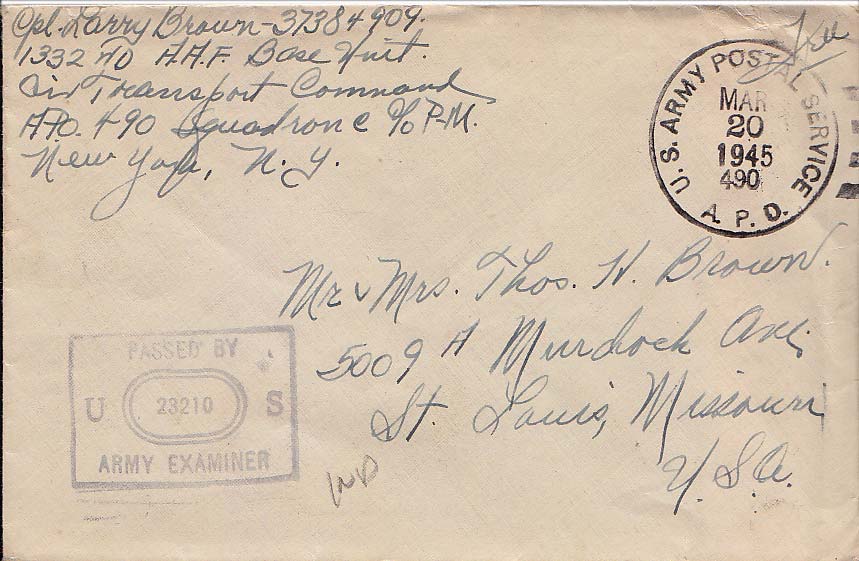 Cpl. Larry Brown-37384909.
1332 AAF Base Unit.
Air Transport Command
APO. 490 Squadron C c/o P.M.
New York, N.Y.
Free
U.S. ARMY POSTAL SERVICE
MAR
20
1945
490
A.P.O.
Mr & Mrs. Thos. H. Brown.
5009 A Murdoch Ave;
St. Louis, Missouri
U.S.A.
PASSED BY
U 23210 S
ARMY EXAMINER